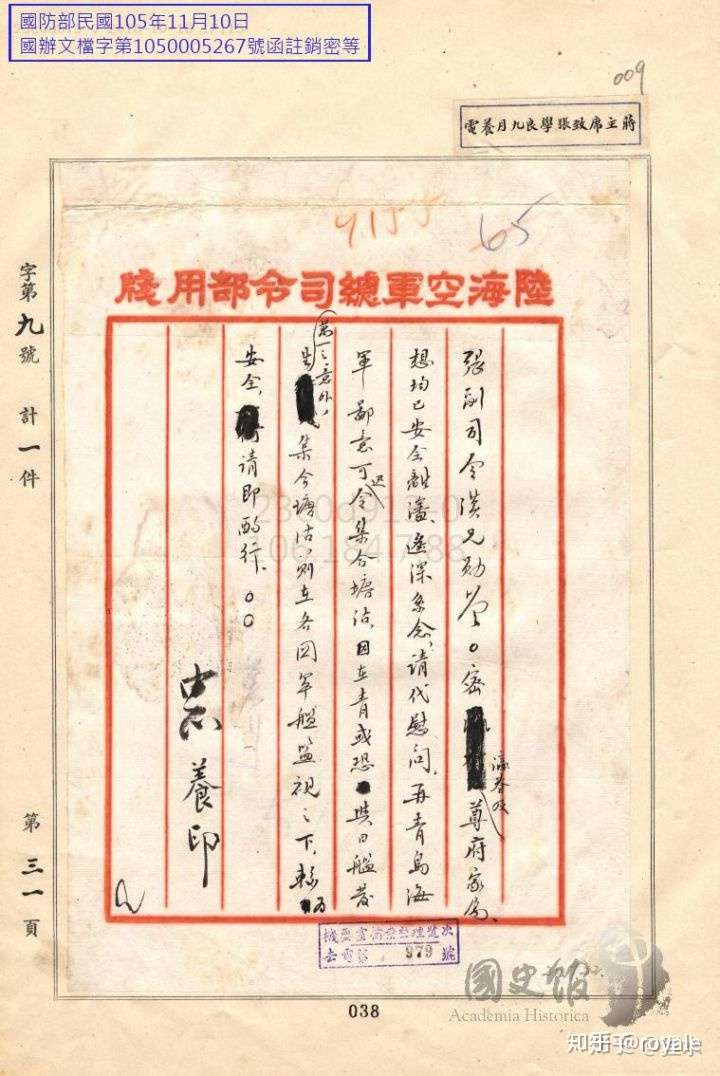 國防部民國105年11月10日
國辦文檔字第1050005267號函註銷密等
009
蔣主席致張學良九月養電
4155
65
陸海空軍總司令部用牋
張副司令漢兄勛鑒。密
瀛眷及
尊府家屬
想均已安全離瀋、遙深系念、請代慰問、再青島海
軍鄙意可迅令集合塘沽、因在青或恐與日艦發
生
萬一之意外、
集合塘沽、則在各國軍艦監視之下、較為
安全、請即酌行、。。
中正
養印
字第九號 計一件
第三一頁
機要室
去電第 979 號
038
國史館
Academia Historica
知乎 @royale